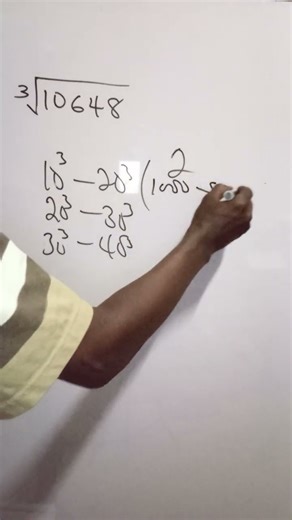 ³√10648
10³ – 20³ (1000 –
20³ – 30³
30³ – 40³
2